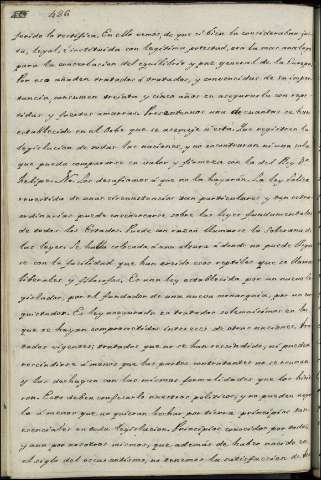 426
sucido lo rectifica. En ello vemos, de que si bien la consideraban jus-
ta, legal, é instituida con legitima potestad, era la mas analoga
para la conservacion del equilibrio y paz general de la Europa.
Por eso añaden tratados á tratados, y convencidos de su impor-
tancia, consumen treinta, y cinco años en asegurarla con repe-
tidas, y fuertes amarras. Presentennos una de cuantas se han
establecido en el Orbe que se asemeje á esta. Las registren la
legislacion de todas las naciones, y no encontraran ni una sola
que pueda compararse en valor y firmeza con la del Rey D.
Felipe. No. Los desafiamos á que no la hayarán. La ley Salica
revestida de unas circunstancias tan particulares y tan extra-
ordinarias puede entronizarse sobre las leyes fundamentales
de todos los Estados. Puede con razon llamarse la Soberana de
las leyes: se halla colocada á una altura á donde no puede llegar-
se con la facilidad que han creido esos reptiles que se llaman
liberales y filosofos. Es una ley establecida por un nuevo le-
gislador, por el fundador de una nueva monarquia, por un con-
quistador. Es ley asegurada en tratados solemnisimos en los
que se hayan comprometidos intereses de otras naciones; tra-
tados vigentes; tratados que no se han rescindido, ni pueden
rescindirse á menos que las partes contratantes no se reunan
y los deshagan con las mismas formalidades que los hicie-
ron. Esto deben confesarlo nuestros politicos, y no pueden negar-
lo á menos que no quieran echar por tierra principios tan
esenciales en esta legislacion. Principios conocidos por todos,
y aun por nosotros mismos, que además de haber nacido en
el siglo del oscurantismo, no tenemos la satisfaccion de